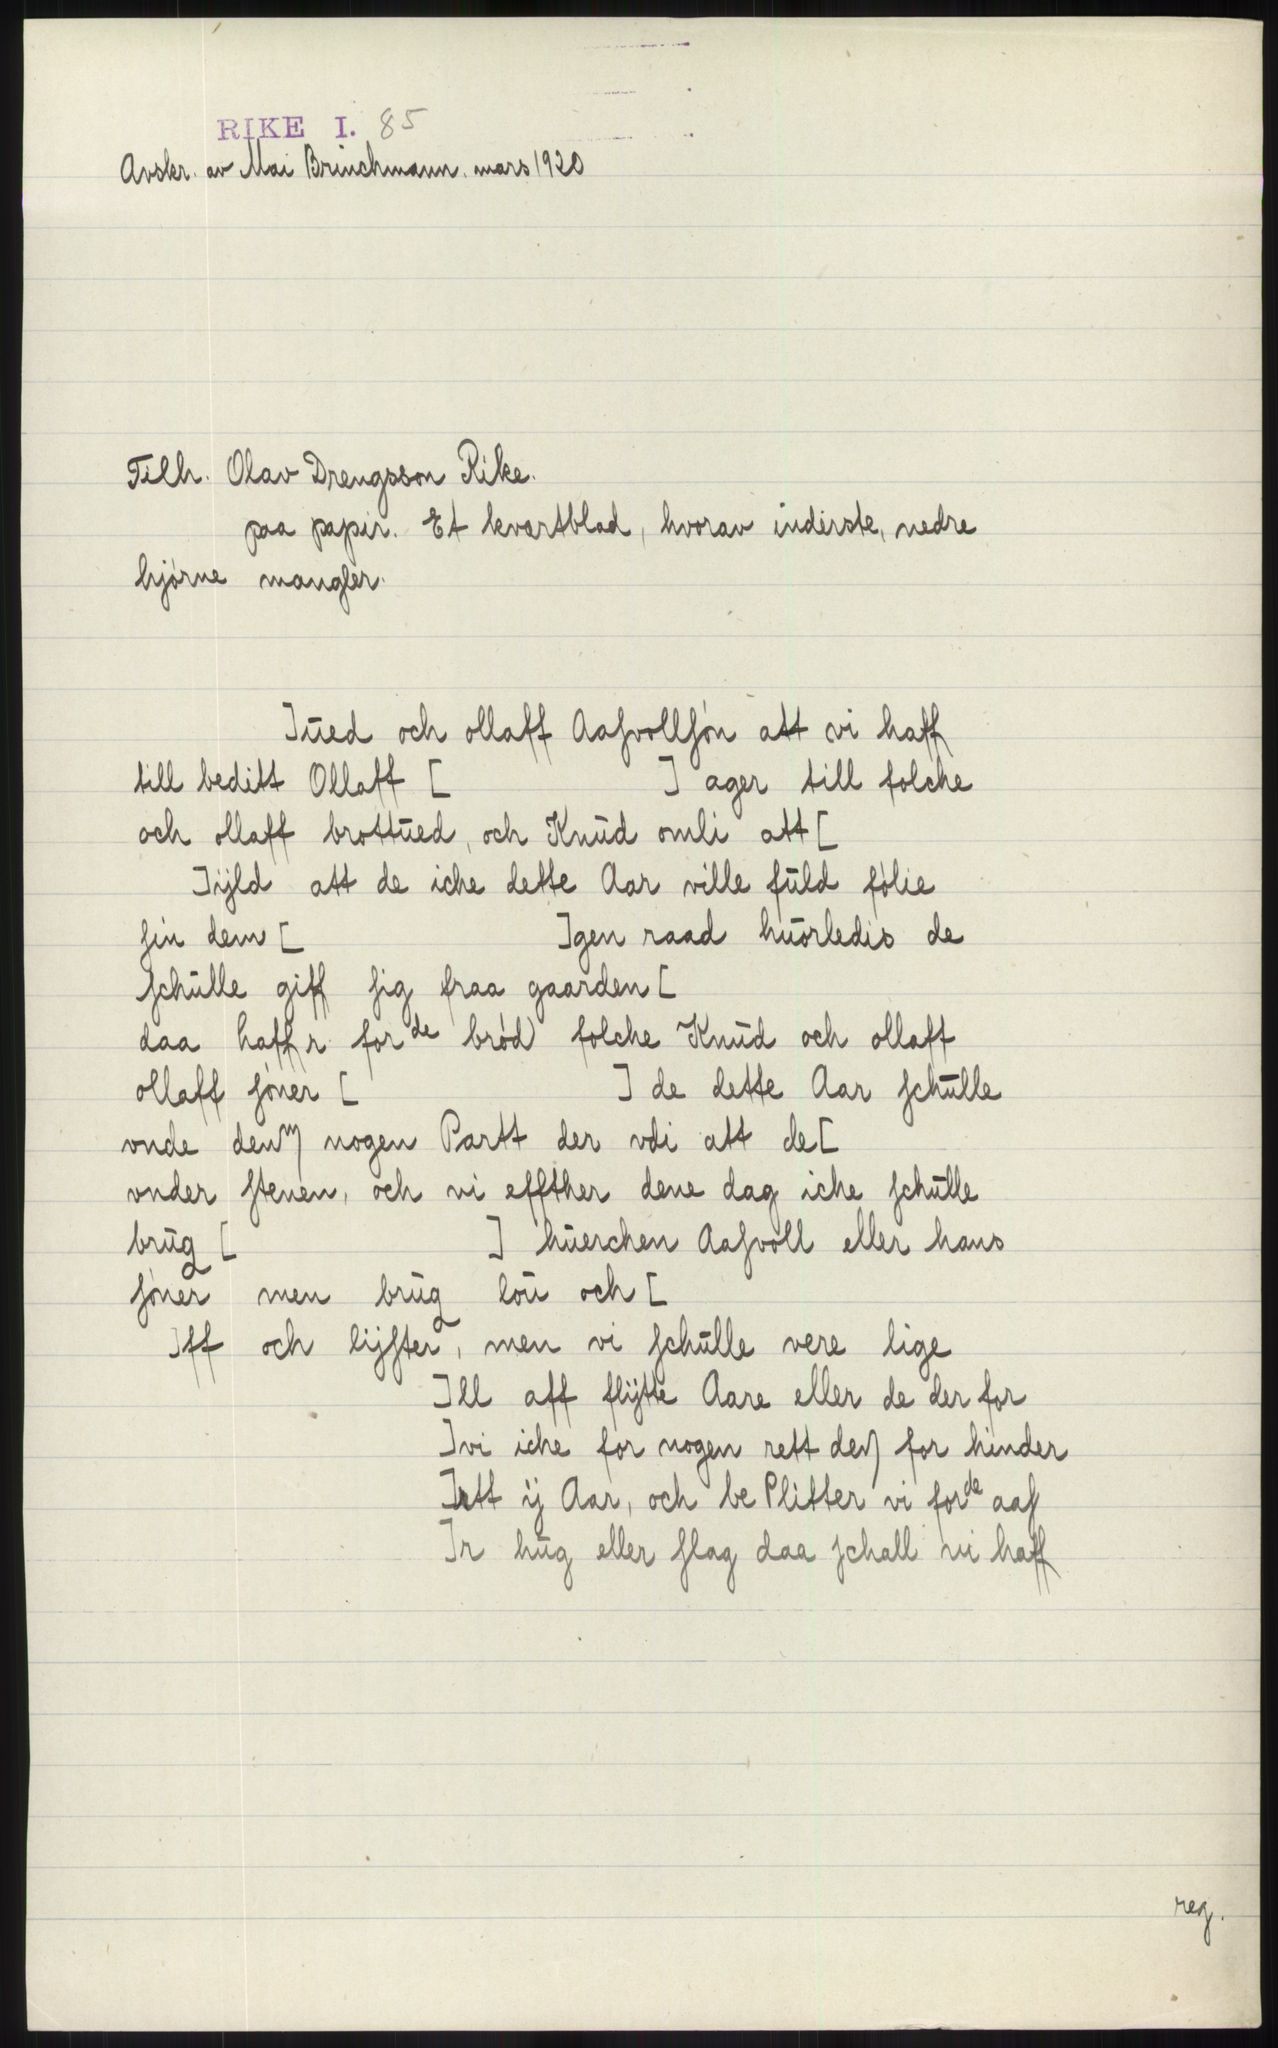 RIKE I. 85
Avskr. av Mai Brinchmann. mars 1920
Tilh. Olav Drengsson Rike.
paa papir. Et kvartblad, hvorav inderste, nedre
hjørne mangler.
]ŭed och ollaff Aasvollsøn att vi haff
till beditt Ollaff [ ] ager till folche
och ollaff brottŭed, och Knŭd omli att [
]ijld att de iche dette Aar ville fŭld følie
sin dem [ ]gen raad hŭorledis de
schŭlle giff sig fraa gaarden [
daa haffr for de brød folche Knŭd och ollaff
ollaff søner [ ] de dette Aar schŭlle
vnde dem nogen Partt der vdi att de [
vnder stenen, och vi effther dene dag iche schŭlle
brŭg [ ] hŭerchen Aasvoll eller hans
søner men brŭg loŭ och [
]ff och lijster, men vi schŭlle vere lige
]ll aff flÿtte Aare eller de der for
]vi iche for nogen rett den for hinder
]tt ij Aar, och be Plitter vi for de aas
]r hŭg eller slag daa schall vi haff
reg.